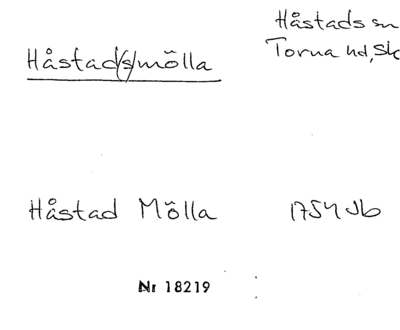 Håstad/s/mölla
Håstads sn
Torna hd, Sk
Håstad Mölla 1754 Jb
Nr 18219